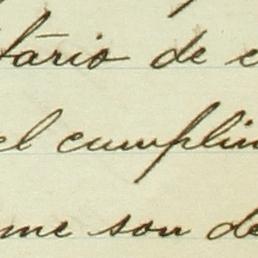 tario de e
el cumplim
me son de